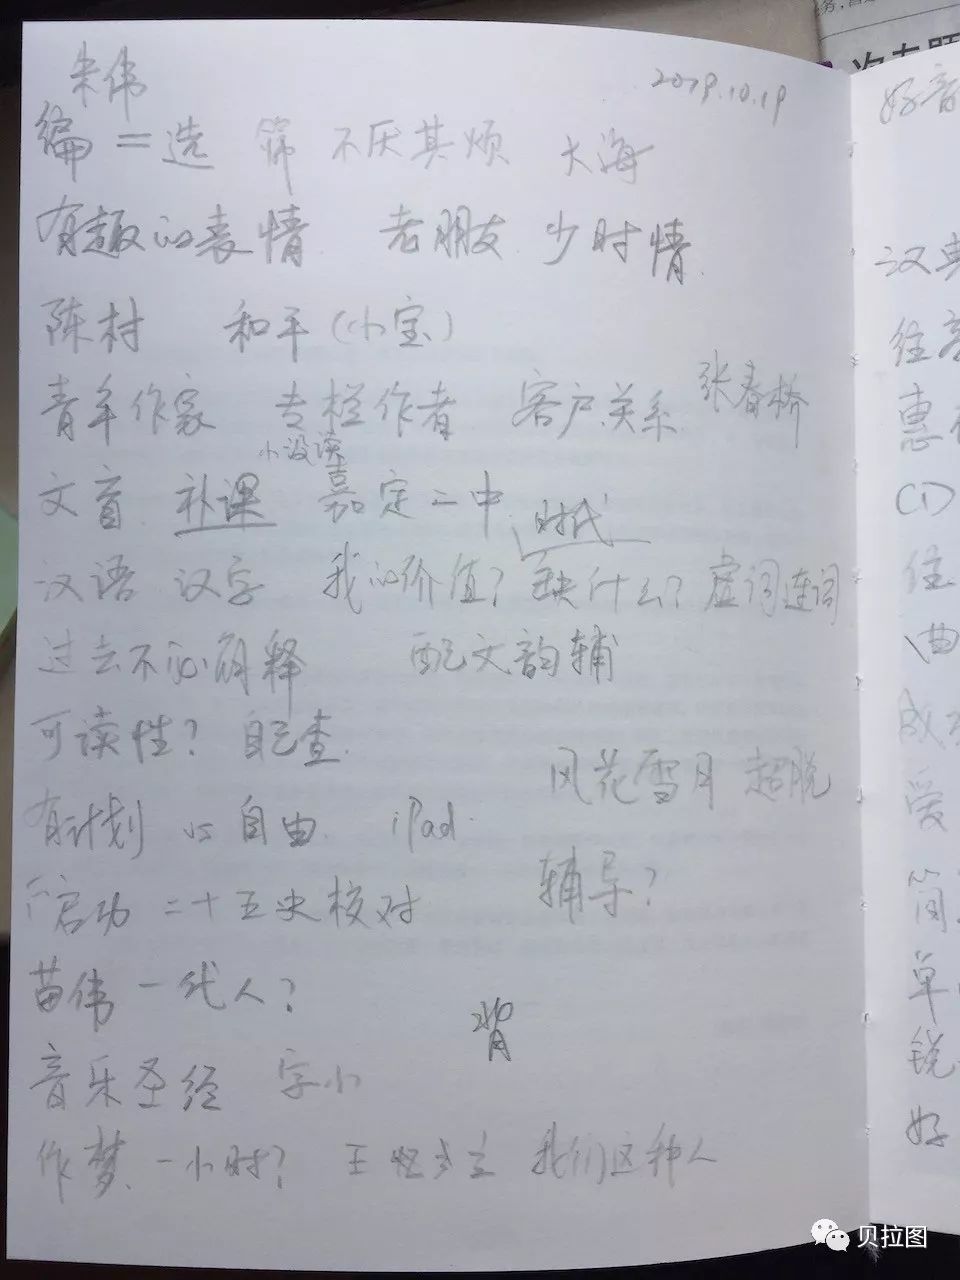 朱伟 2019.10.19
编=选 筛 不厌其烦 大海
有趣的表情 老朋友 少时情
陈村 和平(小宝)
青年作家 专栏作者 客户关系 张春桥
小没读
文盲 补课 嘉定二中 时代
汉语 汉字 我的价值? 缺什么? 虚词连词
过去不必解释 配文韵辅
可读性? 自己查
风花雪月 超脱
有计划 vs 自由 iPad
启功 二十五史核对 辅导?
苗伟 一代人?
背
音乐圣经 字小
作梦 一小时? 王 我们这种人
好音
汉
往
惠
CD
住
曲
成
爱
简
单
锐
好
贝拉图